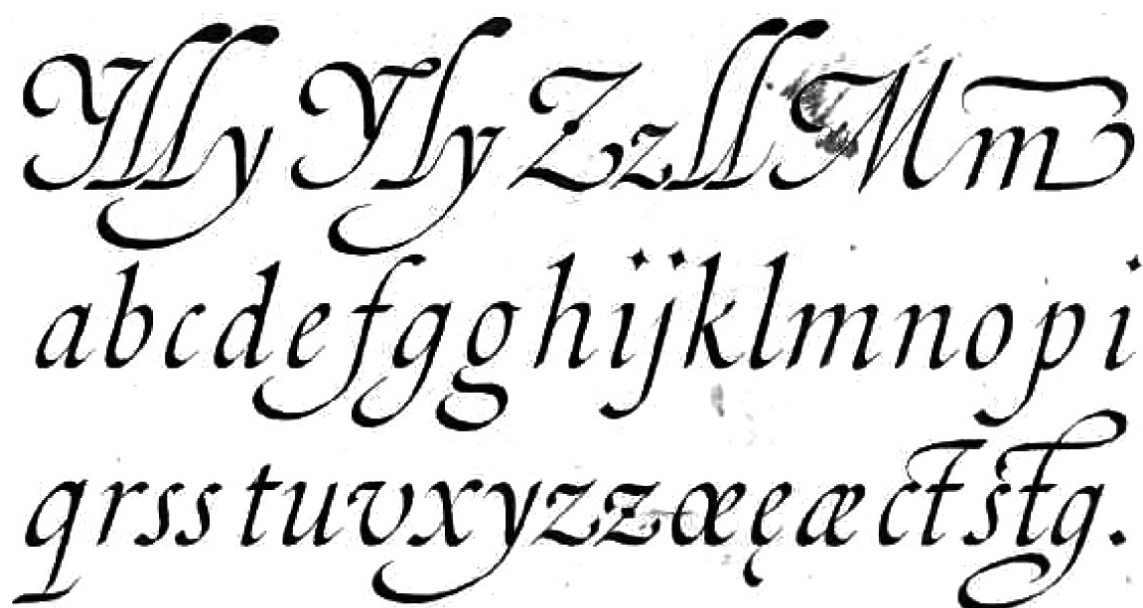 Ylly Yly Zzll Mm
abcdefgghijklmnopi
qrsstuvxyzzœęæctstg.